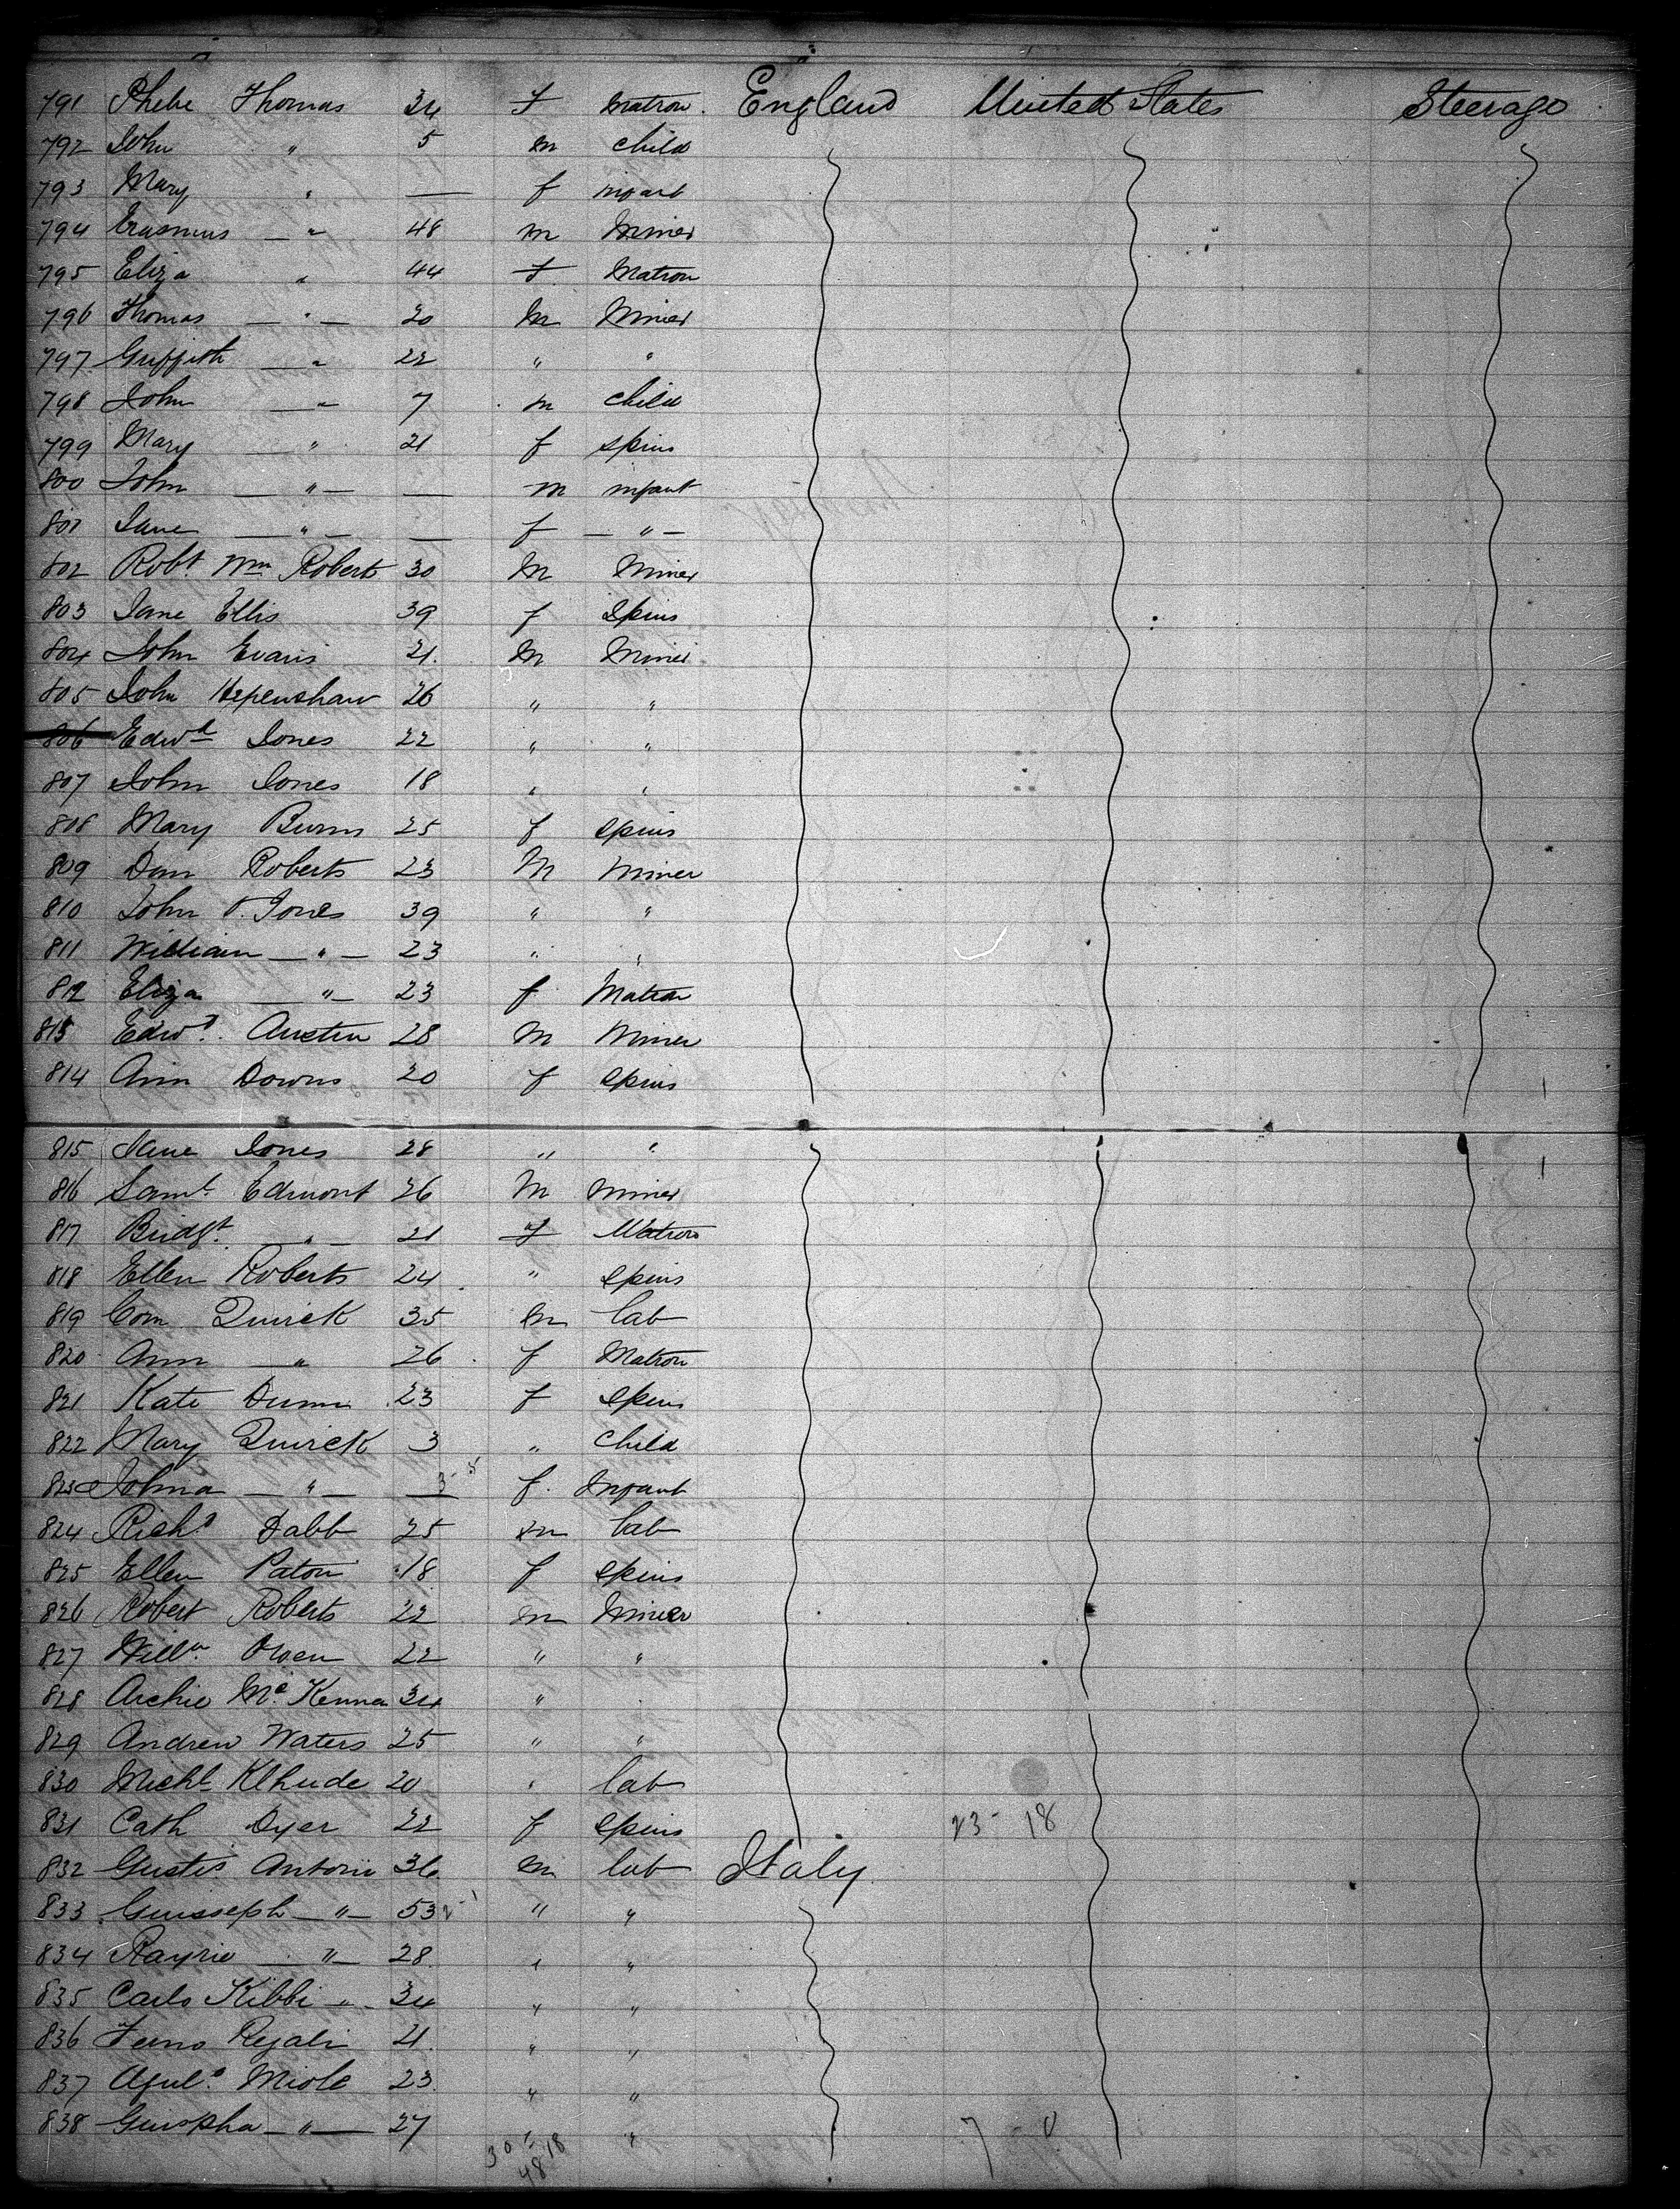 791 Phebe Thomas 34 f Matron England United States Steerage
792 John " 5 m child
793 Mary " — f infant
794 Erasmus — " 48 m Miner
795 Eliza " 44 f Matron
796 Thomas — " — 20 m Miner
797 Griffith — " 22 " "
798 John — " 7 m child
799 Mary — " 21 f spins
800 John — " — — m infant
801 Jane — " — — f — " —
802 Robt. Wm Roberts 30 M Miner
803 Jane Ellis 39 f Spins
804 John Evans 21 M Miner
805 John Hepenshaw 26 " "
806 Edwd Jones 22 " "
807 John Jones 18 " "
808 Mary Burns 25 f spins
809 Dan Roberts 23 M Miner
810 John Jones 39 " "
811 William — " — 23 " "
812 Eliza — " — 23 f Matron
813 Edwd. Austin 28 M Miner
814 Ann Downs 20 f spins
815 Jane Jones 28 " "
816 Saml. Edmont 26 M Miner
817 Bridgt. — " — 21 f Matron
818 Ellen Roberts 24 " spins
819 Corn Quirck 35 m lab
820 Ann — " 26 f Matron
821 Kate Dunn 23 f spins
822 Mary Quirck 3 " child
823 Johna — " — — f Infant
824 Richd Dabb 25 m lab
825 Ellen Paton 18 f spins
826 Robert Roberts 22 m Miner
827 Willm Owen 22 " "
828 Archie Mc Kenna 34 "
829 Andrew Waters 25 " "
830 Michl 20 " lab
831 Cath Dyer 22 f spins 23 - 18
832 Antoni 36 m lab Italy
833 Guisseph — " — 53 " "
834 — " — 28 " "
835 Carlo Kibbi " 34 " "
836 Regali 21 " "
837 Miole 23 " "
838 Guispha — " — 27 "
48